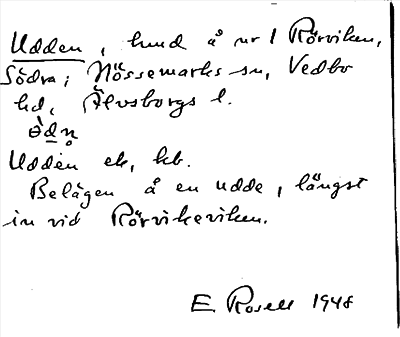 Udden, hmd å nr 1 Rörviken,
Södra; Nössemarks sn, Vedbo
hd, Älvsborgs l.
Udden ek, kb.
Belägen å en udde, längst
in vid Rörvikeviken.
E. Rosell 1948